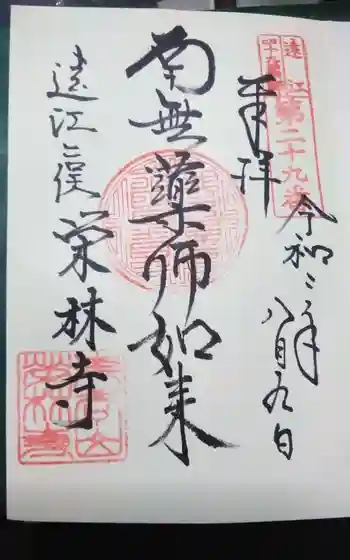 遠江
四十九薬師
第二十九番
奉拝
令和二年
八月九日
南無薬師如来
遠江二俣
栄林寺